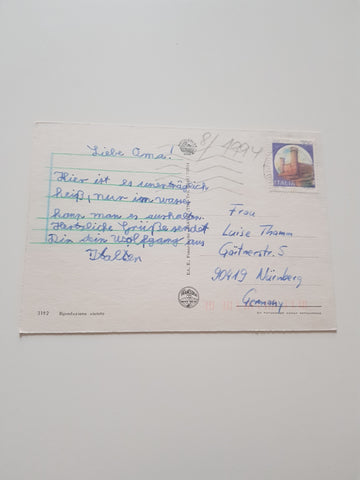 8/1994
ITALIA
Liebe Oma!
Hier ist es unerträglich
heiß, nur im wasser
kann man es aushalten.
Herzliche Grüße sendet
Dir dein Wolfgang aus
Italien
Frau
Luise Thamm
Gärtnerstr. 5
90419 Nürnberg
Germany
3192 Riproduzione vietata